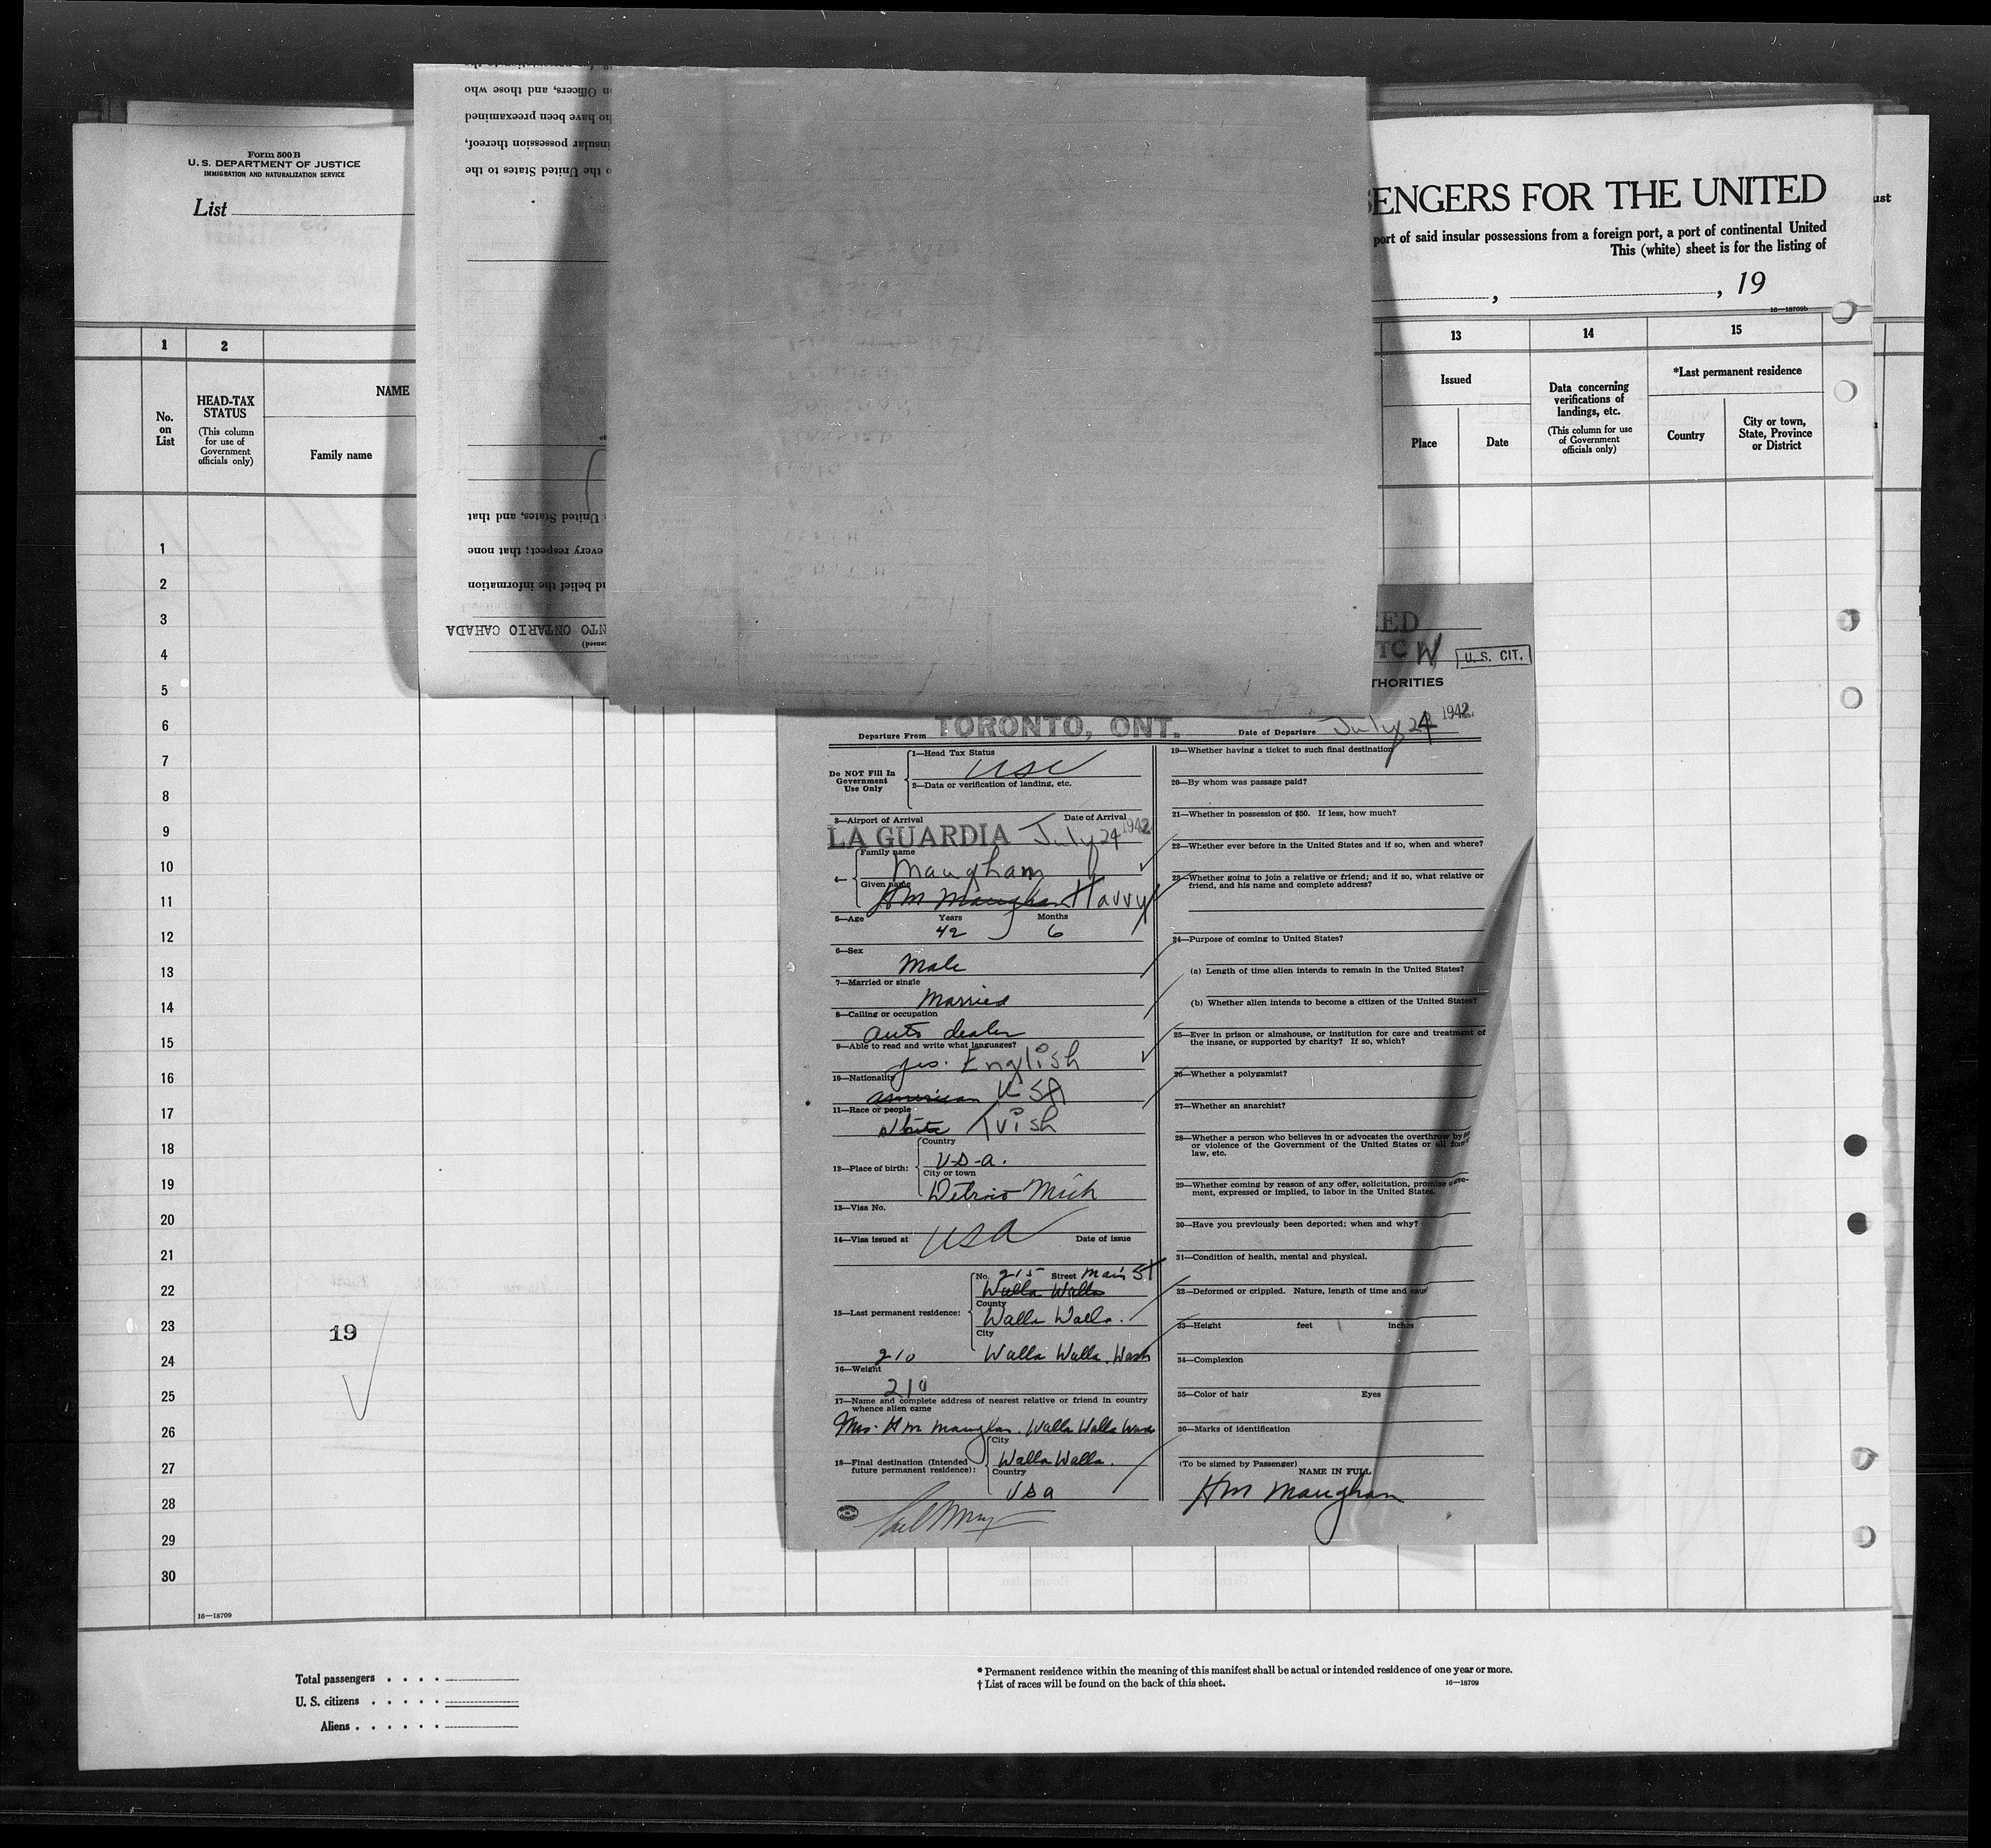 Form 500 B
U. S. DEPARTMENT OF JUSTICE
IMMIGRATION AND NATURALIZATION SERVICE
List
on Officers, and those who
have been preexamined
insular possession thereof,
the United States to the
United States, and that
every respect; that none
belief the information
ONTARIO CAHADA
SENGERS FOR THE UNITED
port of said insular possessions from a foreign port, a port of continental United
This (white) sheet is for the listing of
, , 19
16—18709b
1 2 13 14 15
No. on List
HEAD-TAX STATUS
(This column for use of Government officials only)
NAME
Family name
Issued
Place Date
Data concerning verifications of landings, etc.
(This column for use of Government officials only)
*Last permanent residence
Country
City or town, State, Province or District
1
2
3
4
5
6
7
8
9
10
11
12
13
14
15
16
17
18
19
20
21
22
23
24
25
26
27
28
29
30
19
16—18709
U. S. CIT.
THORITIES
Departure From TORONTO, ONT. Date of Departure July 24 1942
Do NOT Fill In Government Use Only
1—Head Tax Status
USC
2—Data or verification of landing, etc.
3—Airport of Arrival Date of Arrival
LA GUARDIA July 24 1942
4— Family name
Maugham
Given name
HM Maughan Harry
5—Age Years Months
42 6
6—Sex
Male
7—Married or single
Married
8—Calling or occupation
auto dealer
9—Able to read and write what languages?
yes. English
10—Nationality
american USA
11—Race or people
White Irish
12—Place of birth: Country
USA.
City or town
Detroit Mich
13—Visa No.
14—Visa issued at USA Date of issue
15—Last permanent residence: No. 215 Street Main St
Walla Walla
County
Walla Walla.
City
210 Walla Walla. Wash
16—Weight
210
17—Name and complete address of nearest relative or friend in country whence alien came
Mrs. HM Maughan. Walla Walla Wash
18—Final destination (Intended future permanent residence): City
Walla Walla.
Country
USA
19—Whether having a ticket to such final destination
20—By whom was passage paid?
21—Whether in possession of $50. If less, how much?
22—Whether ever before in the United States and if so, when and where?
23—Whether going to join a relative or friend; and if so, what relative or friend, and his name and complete address?
24—Purpose of coming to United States?
(a) Length of time alien intends to remain in the United States?
(b) Whether alien intends to become a citizen of the United States?
25—Ever in prison or almshouse, or institution for care and treatment of the insane, or supported by charity? If so, which?
26—Whether a polygamist?
27—Whether an anarchist?
28—Whether a person who believes in or advocates the overthrow by
or violence of the Government of the United States or all
law, etc.
29—Whether coming by reason of any offer, solicitation, promise
ment, expressed or implied, to labor in the United States.
30—Have you previously been deported; when and why?
31—Condition of health, mental and physical.
32—Deformed or crippled. Nature, length of time and
33—Height feet inches
34—Complexion
35—Color of hair Eyes
36—Marks of identification
(To be signed by Passenger)
NAME IN FULL
HM Maughan
Total passengers
U. S. citizens
Aliens
* Permanent residence within the meaning of this manifest shall be actual or intended residence of one year or more.
† List of races will be found on the back of this sheet. 16—18709